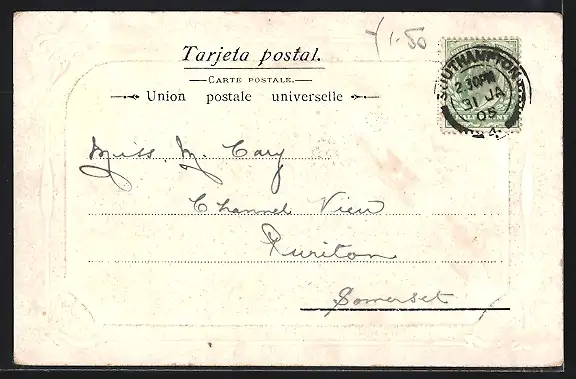 1.50
Tarjeta postal.
CARTE POSTALE.
Union postale universelle
SOUTHAMPTON
2.30PM
31 JA
05
Miss M Cary
Channel View
Puriton
Somerset